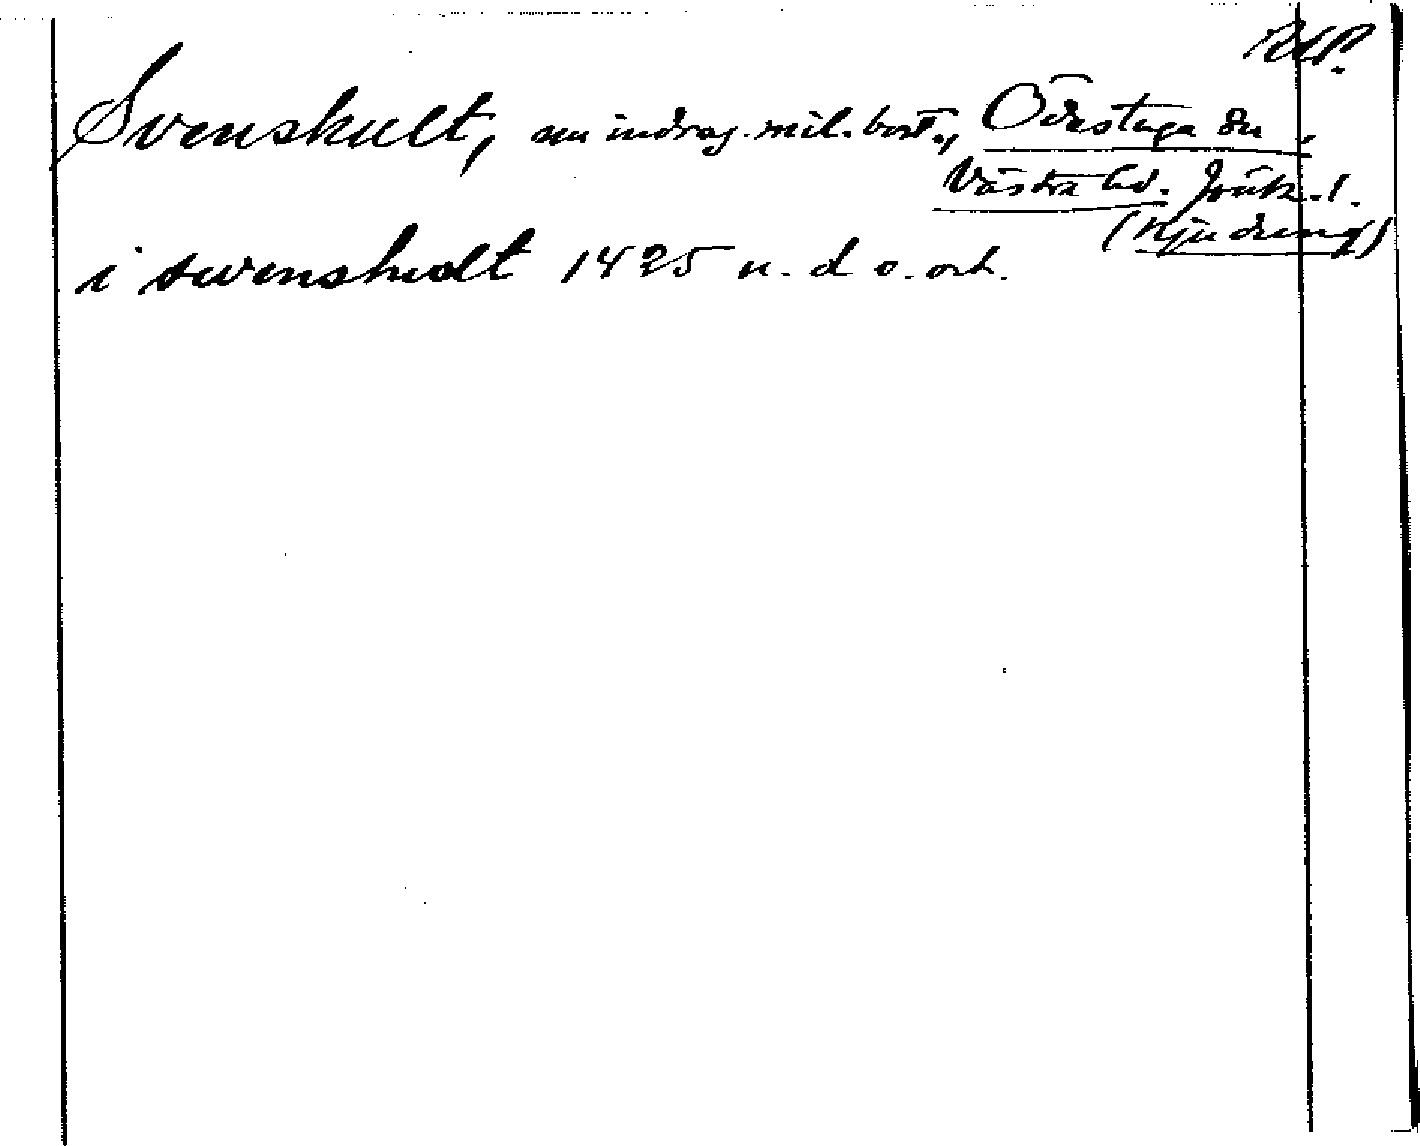 Svenskult, nu indrag. mil. bost., Ödestuga sn,
Västra hd. Jönk. l.
(Njudung)
i swenshwlt 1495 n. d o. ort.